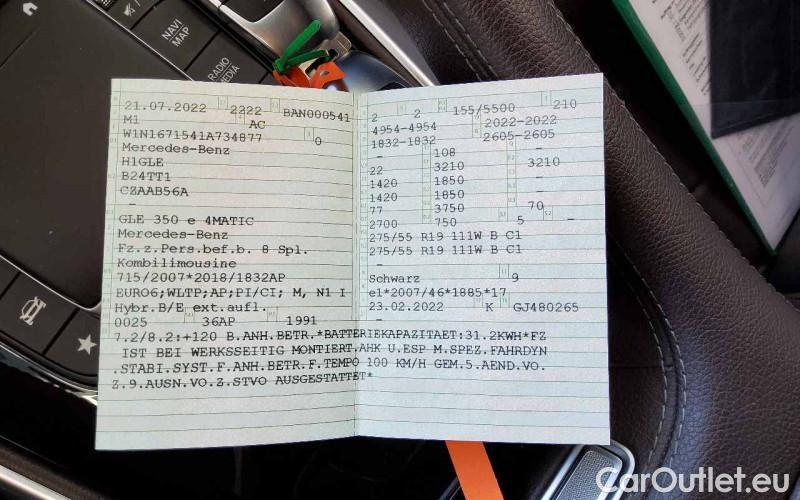 NAVI
/MAP
RADIO
/MEDIA
21.07.2022 2222 BAN000541
M1 AC
W1N1671541A734877 0
Mercedes-Benz
H1GLE
B24TT1
CZAAB56A
–
GLE 350 e 4MATIC
Mercedes-Benz
Fz.z.Pers.bef.b. 8 Spl.
Kombilimousine
715/2007*2018/1832AP
EURO6;WLTP;AP;PI/CI; M, N1 I
Hybr.B/E ext.aufl.
0025 36AP 1991
2 2 155/5500 210
4954-4954 2022-2022
1832-1832 2605-2605
– 108 –
22 3210 3210
1420 1850 –
1420 1850 –
77 3750 70
2700 750 5 –
275/55 R19 111W B C1
275/55 R19 111W B C1
–
Schwarz 9
e1*2007/46*1885*17
23.02.2022 K GJ480265
7.2/8.2:+120 B.ANH.BETR.*BATTERIEKAPAZITAET:31.2KWH*FZ
IST BEI WERKSSEITIG MONTIERT.AHK U.ESP M.SPEZ.FAHRDYN
.STABI.SYST.F.ANH.BETR.F.TEMPO 100 KM/H GEM.5.AEND.VO.
Z.9.AUSN.VO.Z.STVO AUSGESTATTET*
CarOutlet.eu